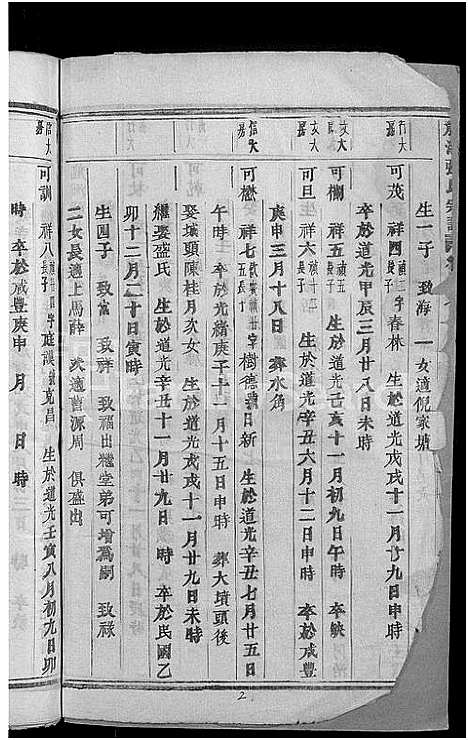 生一子 致海 一女適倪家塘
行大
可茂 祥四 字春林 生於道光戊戌十一月廿九日申時
卒於道光甲辰三月廿八日未時
可欄 祥五 生於道光壬寅十一月初九日午時 卒缺
可旦 祥六 生於道光辛丑六月十二日申時 卒於咸豐
庚申三月十八日 葬水角
信大
可楙 祥七 字樹德 日新 生於道光辛丑七月廿五日
午時 卒於光緒庚子十二月十五日申時 葬大墳頭後
娶城頭陳桂月次女 生於道光戊戌十一月廿九日未時
繼娶盛氏 生於道光辛丑十一月廿九日 時 卒於民國乙
卯十二月二十日寅時
生四子 致富 致祥 致福出繼堂弟可增為嗣 致祿
二女長適上馬薛 次適舊源周 俱盛出
信大
可訓 祥八 字廷謨 克昌 生於道光壬寅八月初九日卯
時 卒於咸豐庚申 月 日 時
2